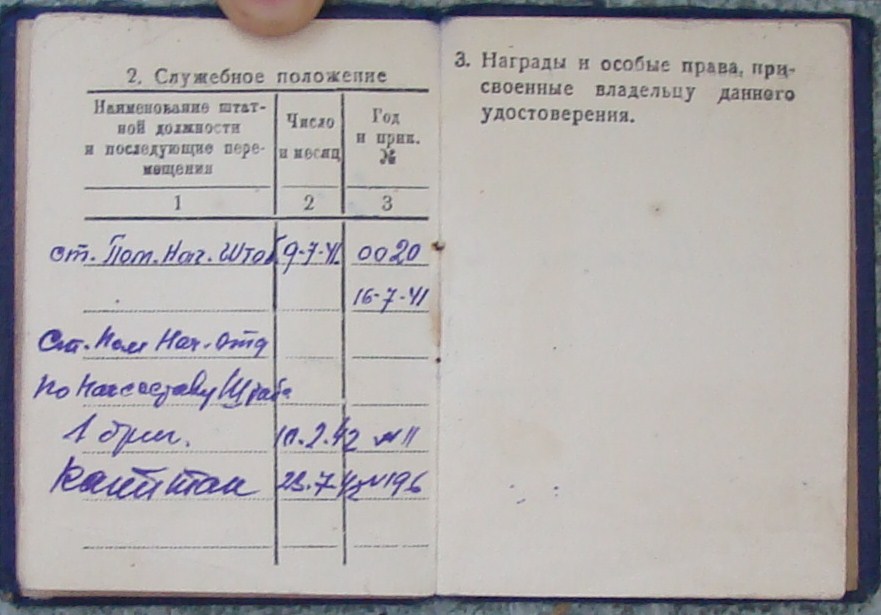 2. Служебное положение
Наименование штат-
ной должности
и последующие пере-
мещения
Число
и месяц
Год
и прик.
№
1 2 3
ст. Пом. Нач. Штаб 9-7-41 0020
16-7-41
Ст. Пом Нач. Отд
по Начсоставу Штаба
1 бриг. 10.2.42 №11
Капитан 23.7.42 №196
3. Награды и особые права, при-
своенные владельцу данного
удостоверения.